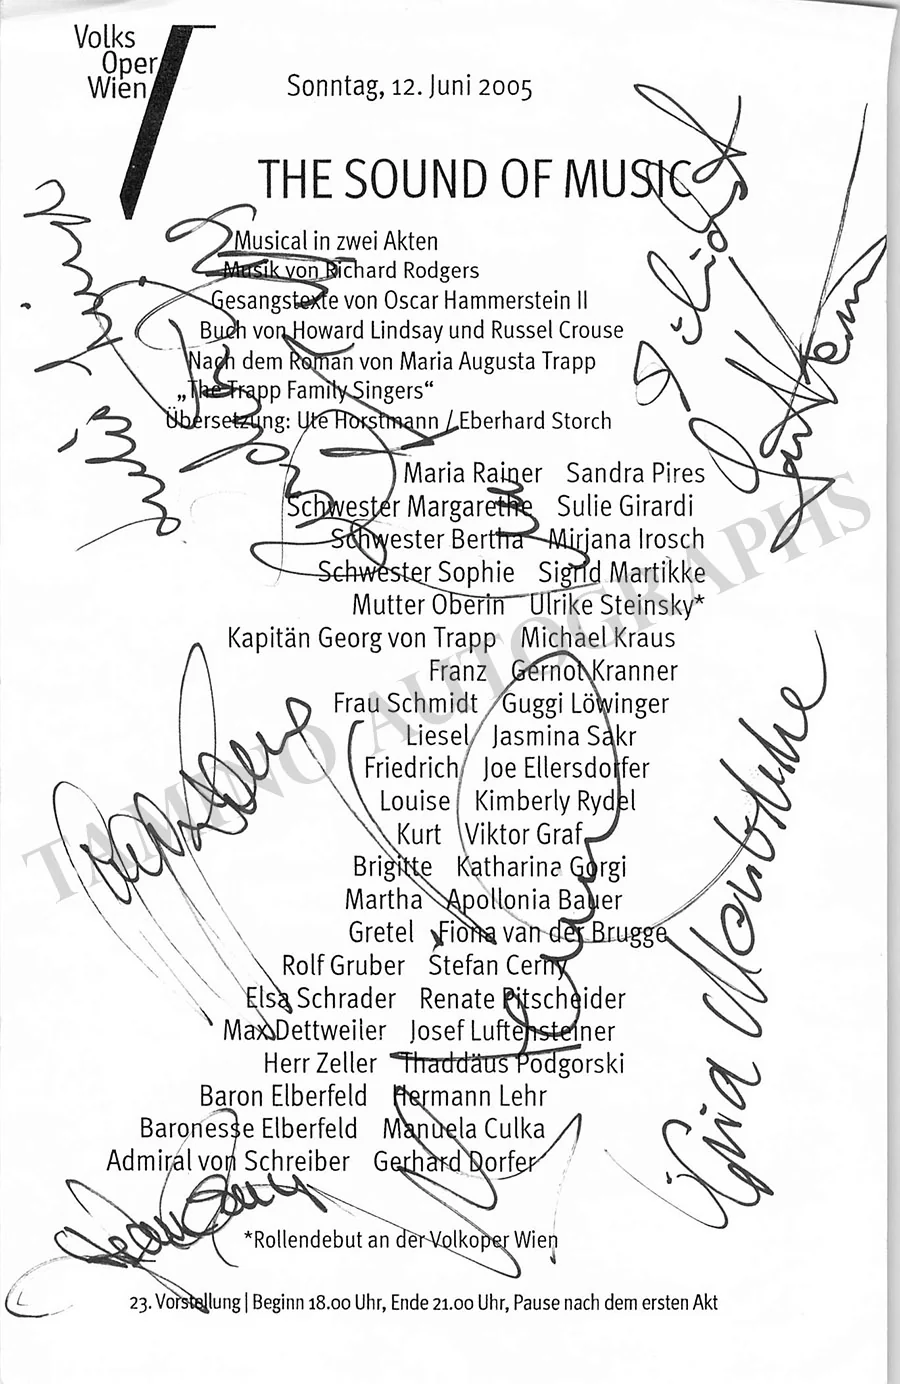 Volks
Oper
Wien
Sonntag, 12. Juni 2005
THE SOUND OF MUSIC
Musical in zwei Akten
Musik von Richard Rodgers
Gesangstexte von Oscar Hammerstein II
Buch von Howard Lindsay und Russel Crouse
Nach dem Roman von Maria Augusta Trapp
„The Trapp Family Singers“
Übersetzung: Ute Horstmann / Eberhard Storch
Maria Rainer Sandra Pires
Schwester Margarethe Sulie Girardi
Schwester Bertha Mirjana Irosch
Schwester Sophie Sigrid Martikke
Mutter Oberin Ulrike Steinsky*
Kapitän Georg von Trapp Michael Kraus
Franz Gernot Kranner
Frau Schmidt Guggi Löwinger
Liesel Jasmina Sakr
Friedrich Joe Ellersdorfer
Louise Kimberly Rydel
Kurt Viktor Graf
Brigitte Katharina Gorgi
Martha Apollonia Bauer
Gretel Fiona van der Brugge
Rolf Gruber Stefan Cerny
Elsa Schrader Renate Pitscheider
Max Dettweiler Josef Luftensteiner
Herr Zeller Thaddäus Podgorski
Baron Elberfeld Hermann Lehr
Baronesse Elberfeld Manuela Culka
Admiral von Schreiber Gerhard Dorfer
*Rollendebut an der Volkoper Wien
23. Vorstellung | Beginn 18.00 Uhr, Ende 21.00 Uhr, Pause nach dem ersten Akt
TAMINO AUTOGRAPHS